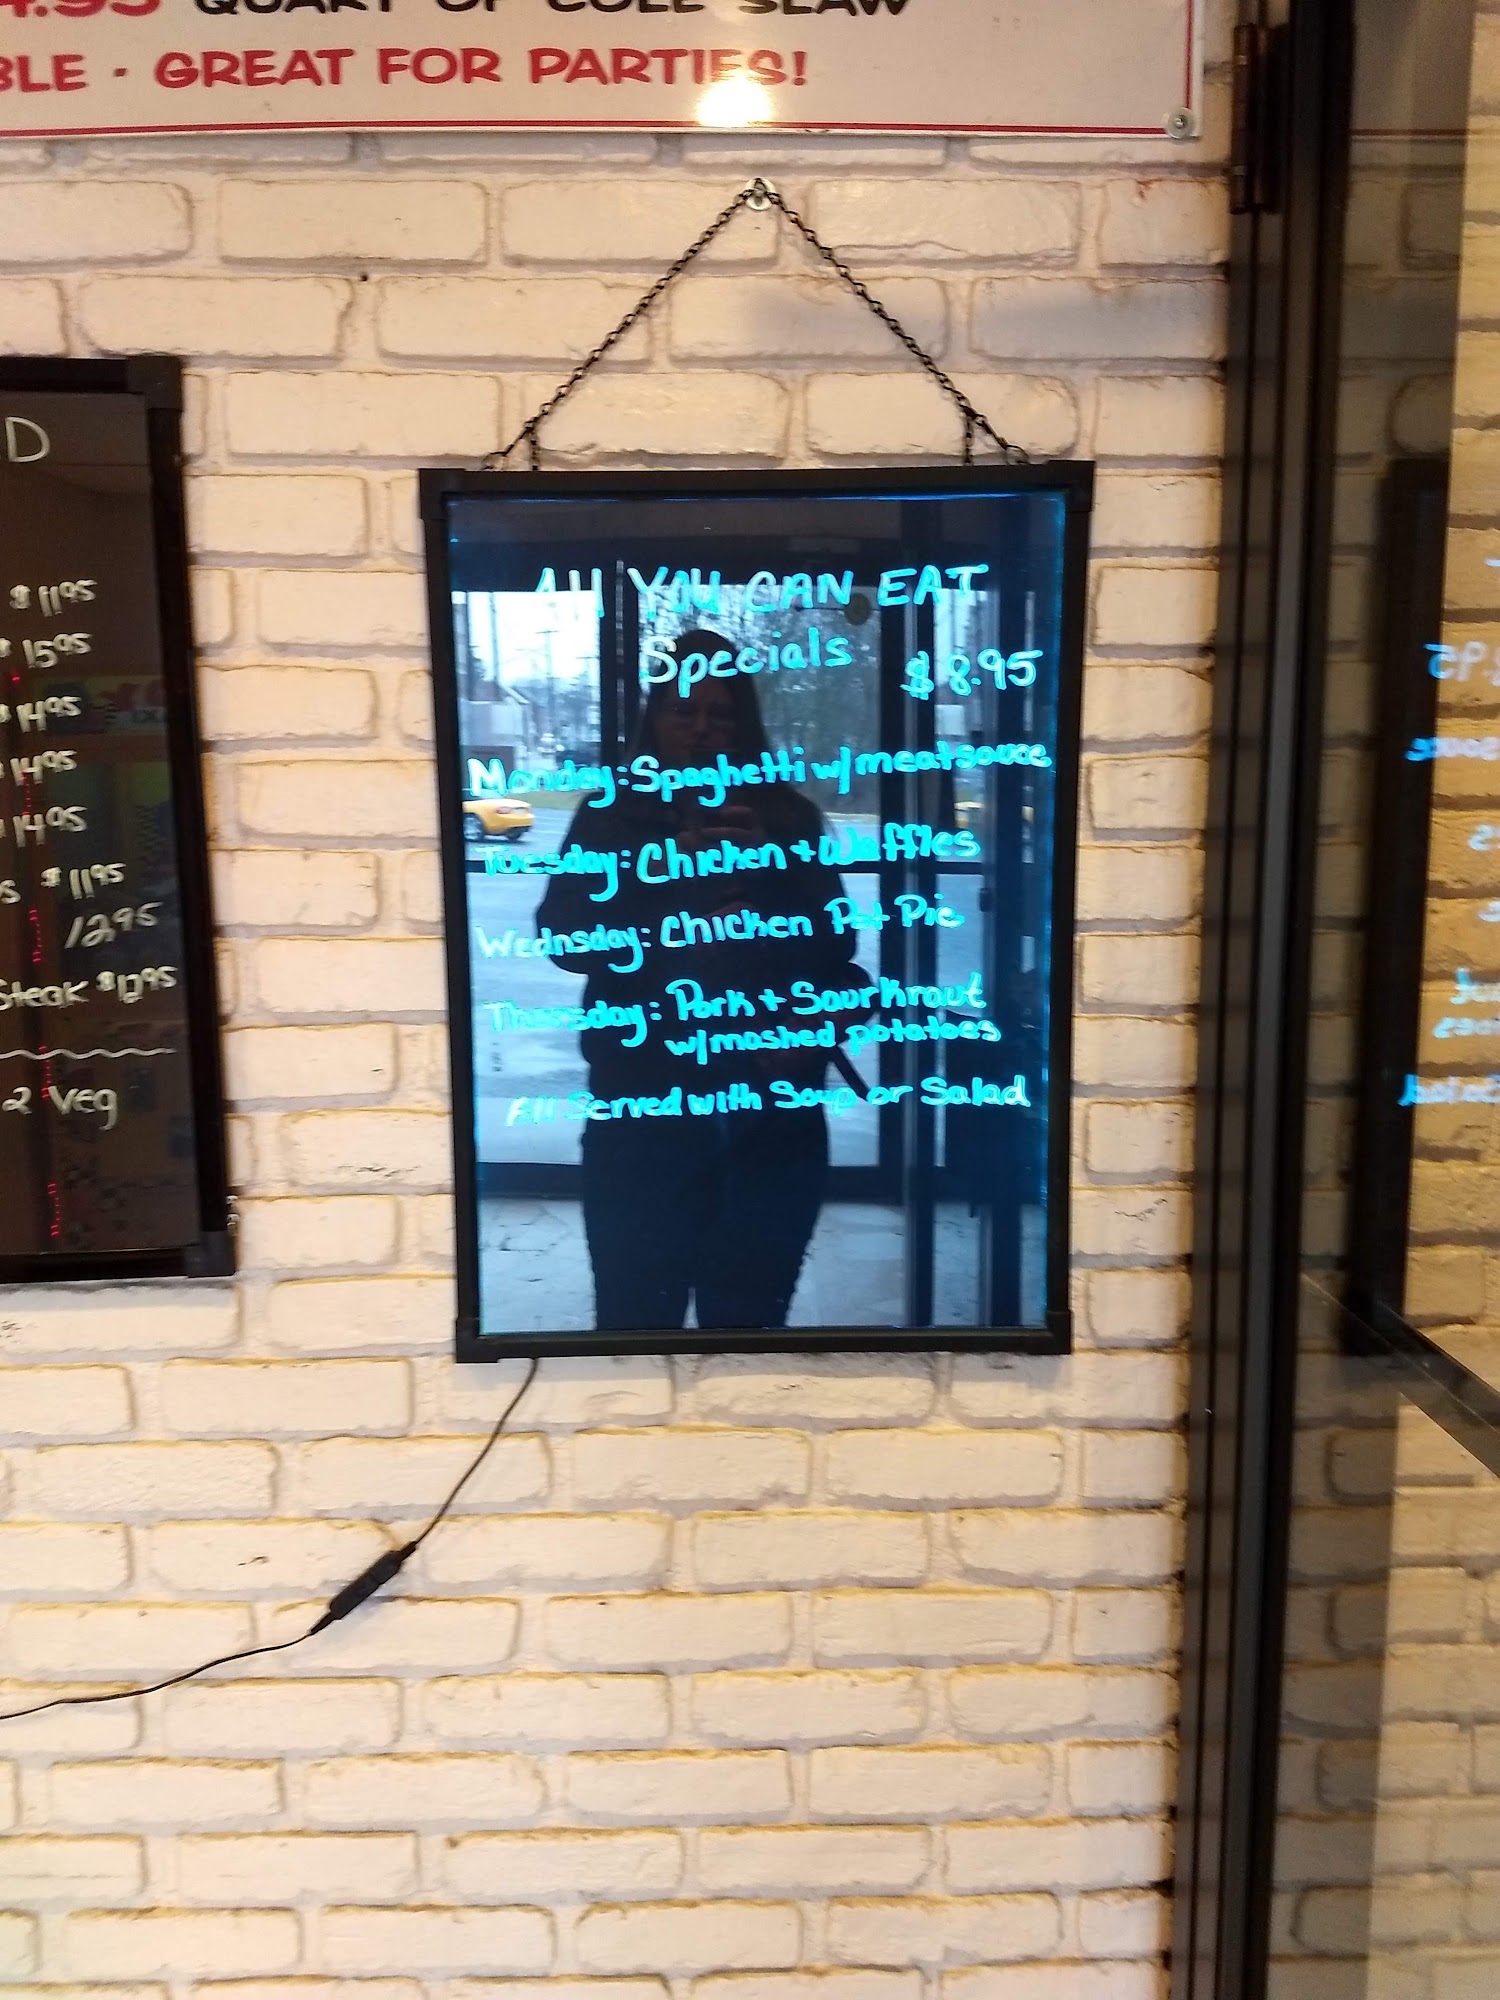 4.95 QUART OF COLE SLAW
BLE · GREAT FOR PARTIES!
D
$11.95
$15.95
$14.95
14.95
14.95
s $11.95
12.95
Steak $12.95
2 veg
All YOU CAN EAT
Specials $8.95
Monday: Spaghetti w/ meatsauce
Tuesday: Chicken + Waffles
Wednsday: Chicken Pot Pie
Thursday: Pork + Saurkraut
w/ mashed potatoes
All Served with Soup or Salad